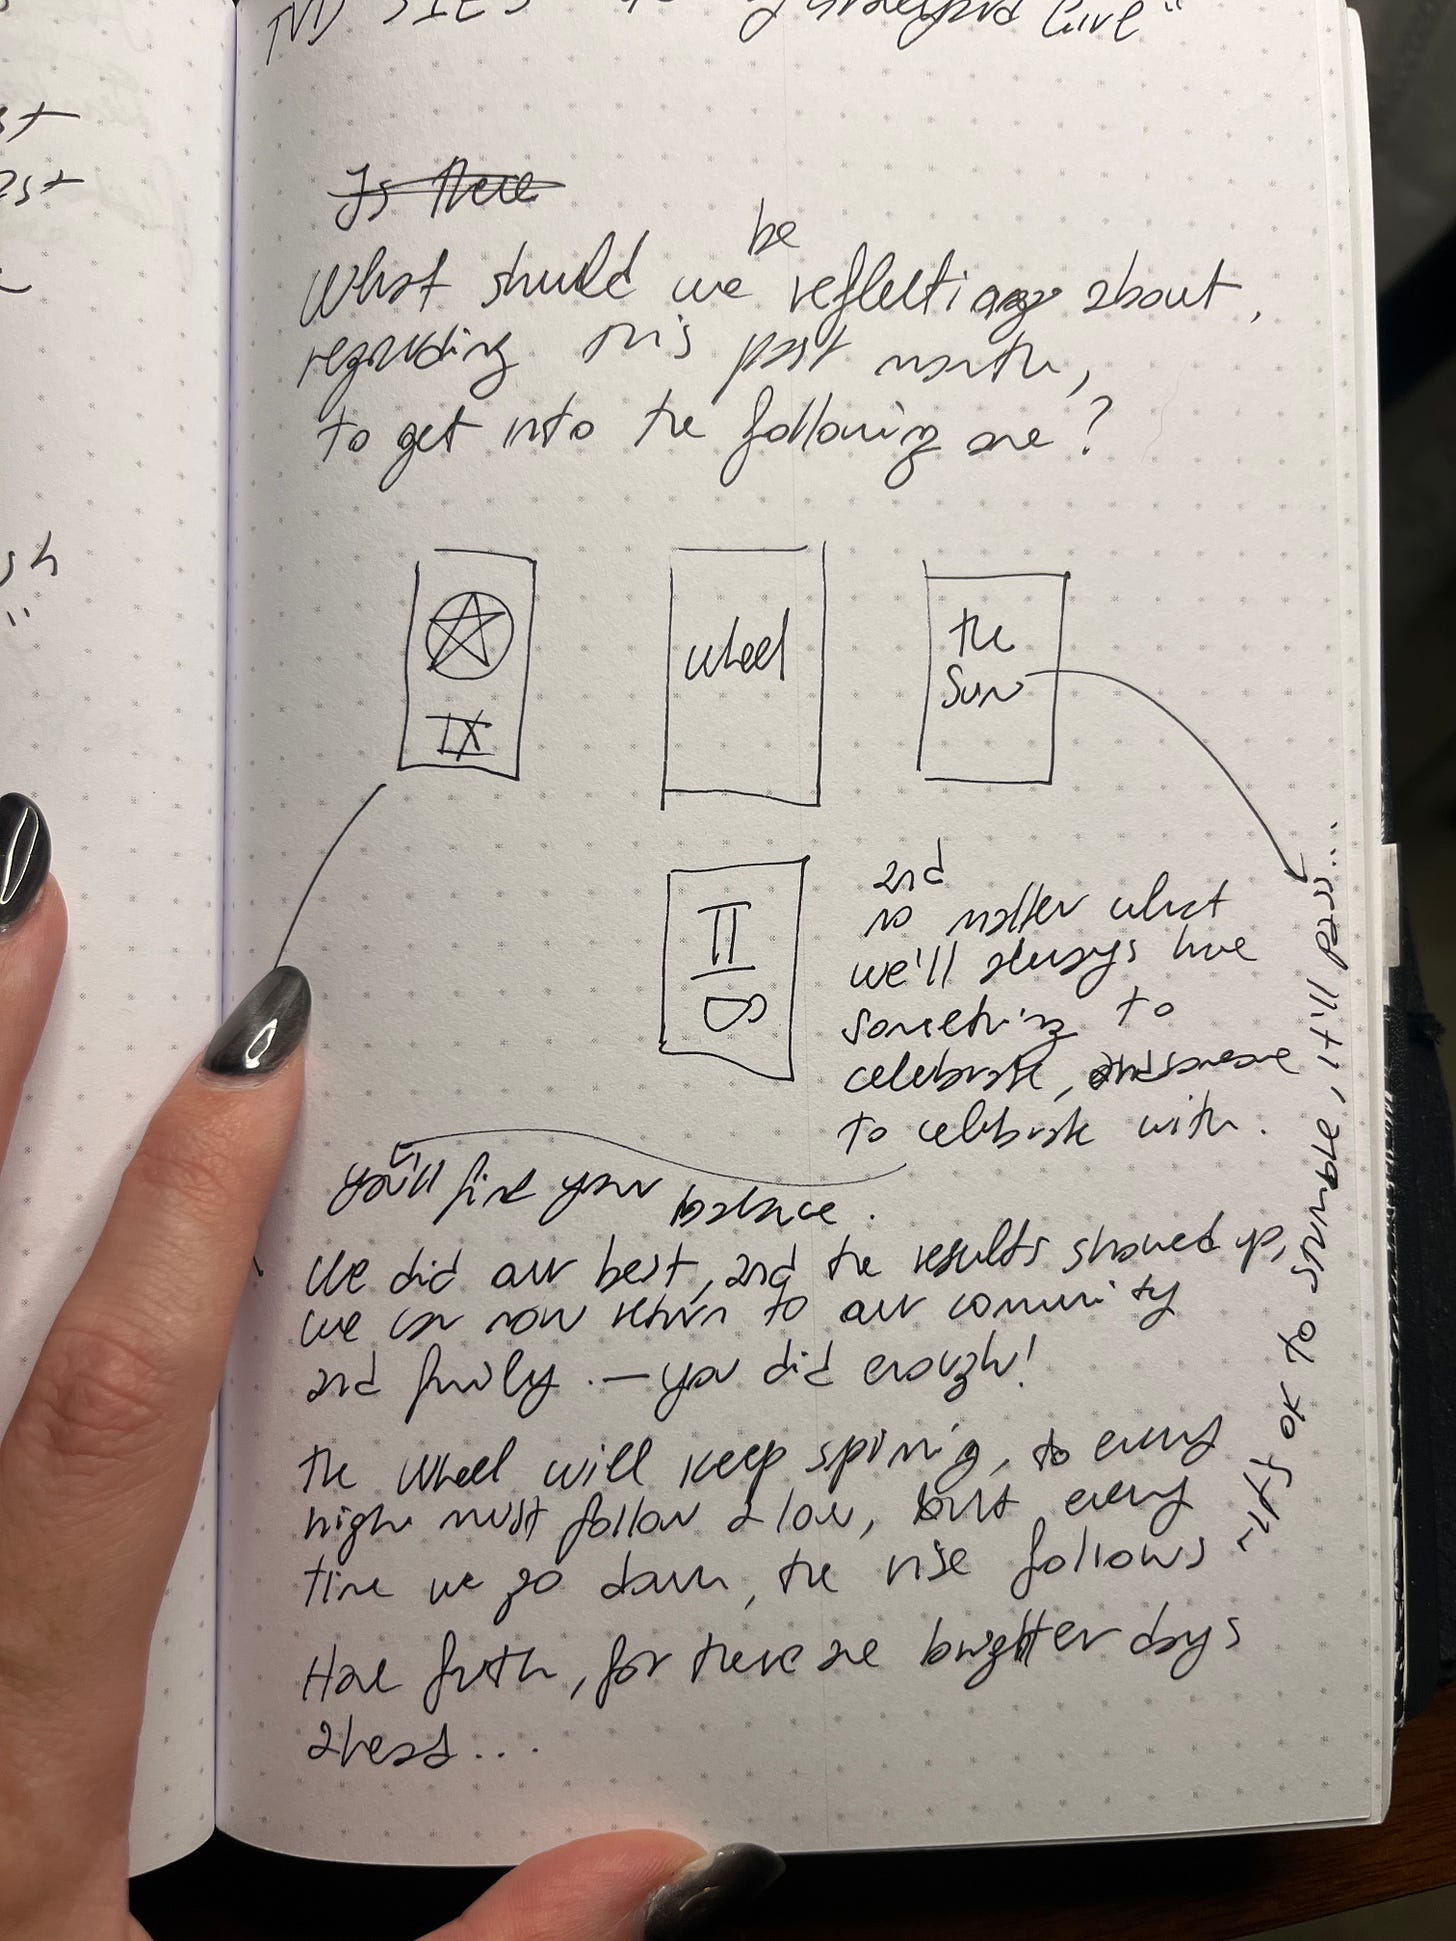 st
st
sh
"
Is there
be
What should we reflecting about,
regarding this past month,
to get into the following one?
IX
Wheel
the
Sun
II
and
no matter what
we'll always have
something to
celebrate, and someone
to celebrate with.
you'll find your balance.
We did our best, and the results showed up,
we can now return to our community
and family. — you did enough!
The Wheel will keep spining, to every
high must follow a low, but every
time we go down, the rise follows
Have faith, for there are brighter days
ahead...
~it's ok to stumble, it'll pass...